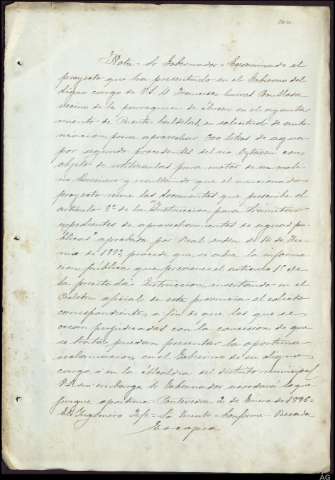 Nota = Sr Gobernador = Examinado el
proyecto que ha presentado en el Gobierno del
digno cargo de V.S. D. Francisco
vecino de la parroquia de en el ayunta-
miento de Puente Caldelas en solicitud de auto-
rización para aprovechar 200 litros de agua
por segundo procedentes del río con
objeto de utilizarlos para motor de un moli-
no harinero y resultando que el mencionado
proyecto reune los documentos que prescribe el
artículo 2º de la Instrucción para tramitar
expedientes de aprovechamientos de aguas pú-
blicas aprobada por Real orden de 14 de Ju-
nio de 1883, procede que se abra la informa-
ción pública que previene el artículo 1º de
la precitada Instrucción insertando en el
Boletin oficial de esta provincia el edicto
correspondiente, a fin de que los que se
crean perjudicados con la concesión de que
se trata, puedan presentar la oportuna
reclamación en el Gobierno de su digno
cargo, o en la Alcaldía del distrito municipal
V.S. sin embargo Sr Gobernador resolverá lo
que Pontevedra 2 de Enero de 1896 =
El Ingeniero Jefe =